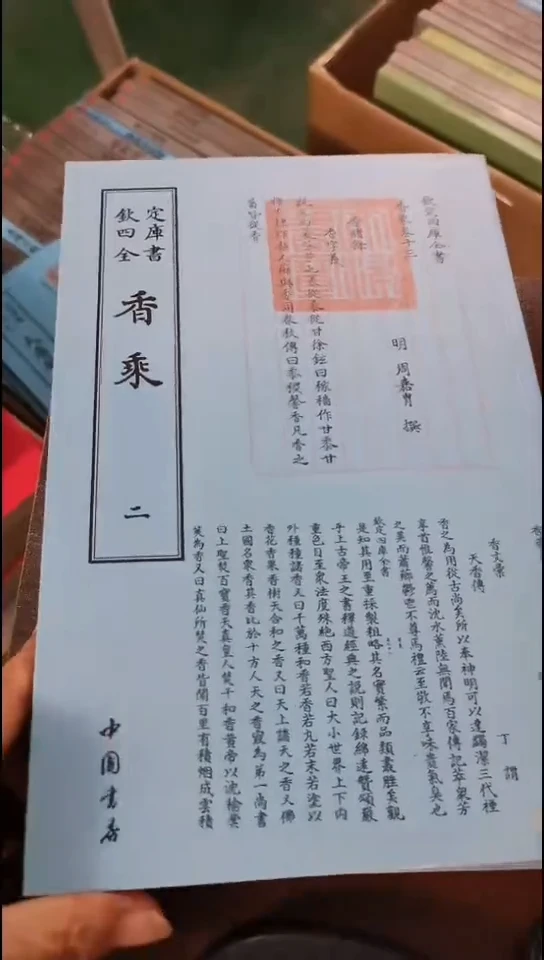 欽定
四庫
全書
香乘
二
中國書店
欽定四庫全書
香乘卷十三
明 周嘉胄 撰
香緒餘
香字義
從黍從甘徐鉉曰稼穡作甘黍甘
春秋傳曰黍稷馨香凡香之
香文彙
天香傳 丁謂
香之為用從古尚矣所以奉神明可以達蠲潔三代禋
享首惟馨之薦而沈水薰陸無聞焉百家傳記萃眾芳
之美而蕭薌鬱鬯不尊焉禮云至敬不享味貴氣臭也
欽定四庫全書
是知其用至重採製粗略其名實繁而品類叢脞矣觀
乎上古帝王之書釋道經典之說則記錄綿遠贊頌嚴
重色目至眾法度殊絕西方聖人曰大小世界上下內
外種種諸香又曰千萬種和香若香若丸若末若塗以
香花香果香樹天合和之香又曰天上諸天之香又佛
土國名眾香其香比於十方人天之香最為第一尚書
曰上聖焚百寶香天真皇人焚千和香黃帝以沈榆蓂
莢為香又曰真仙所焚之香皆聞百里有積烟成雲積